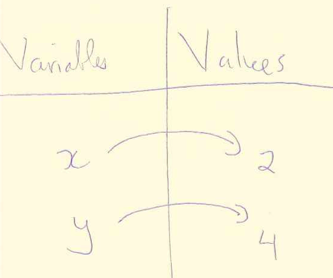 Variables Values
x 2
y 4